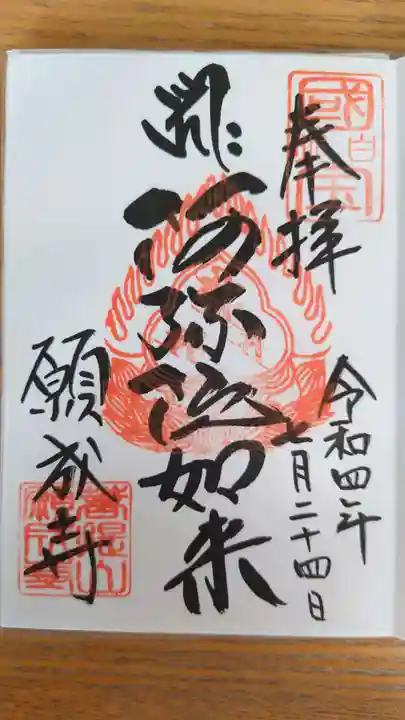 奉拝
令和四年
七月二十四日
阿弥陀如来
願成寺
國宝